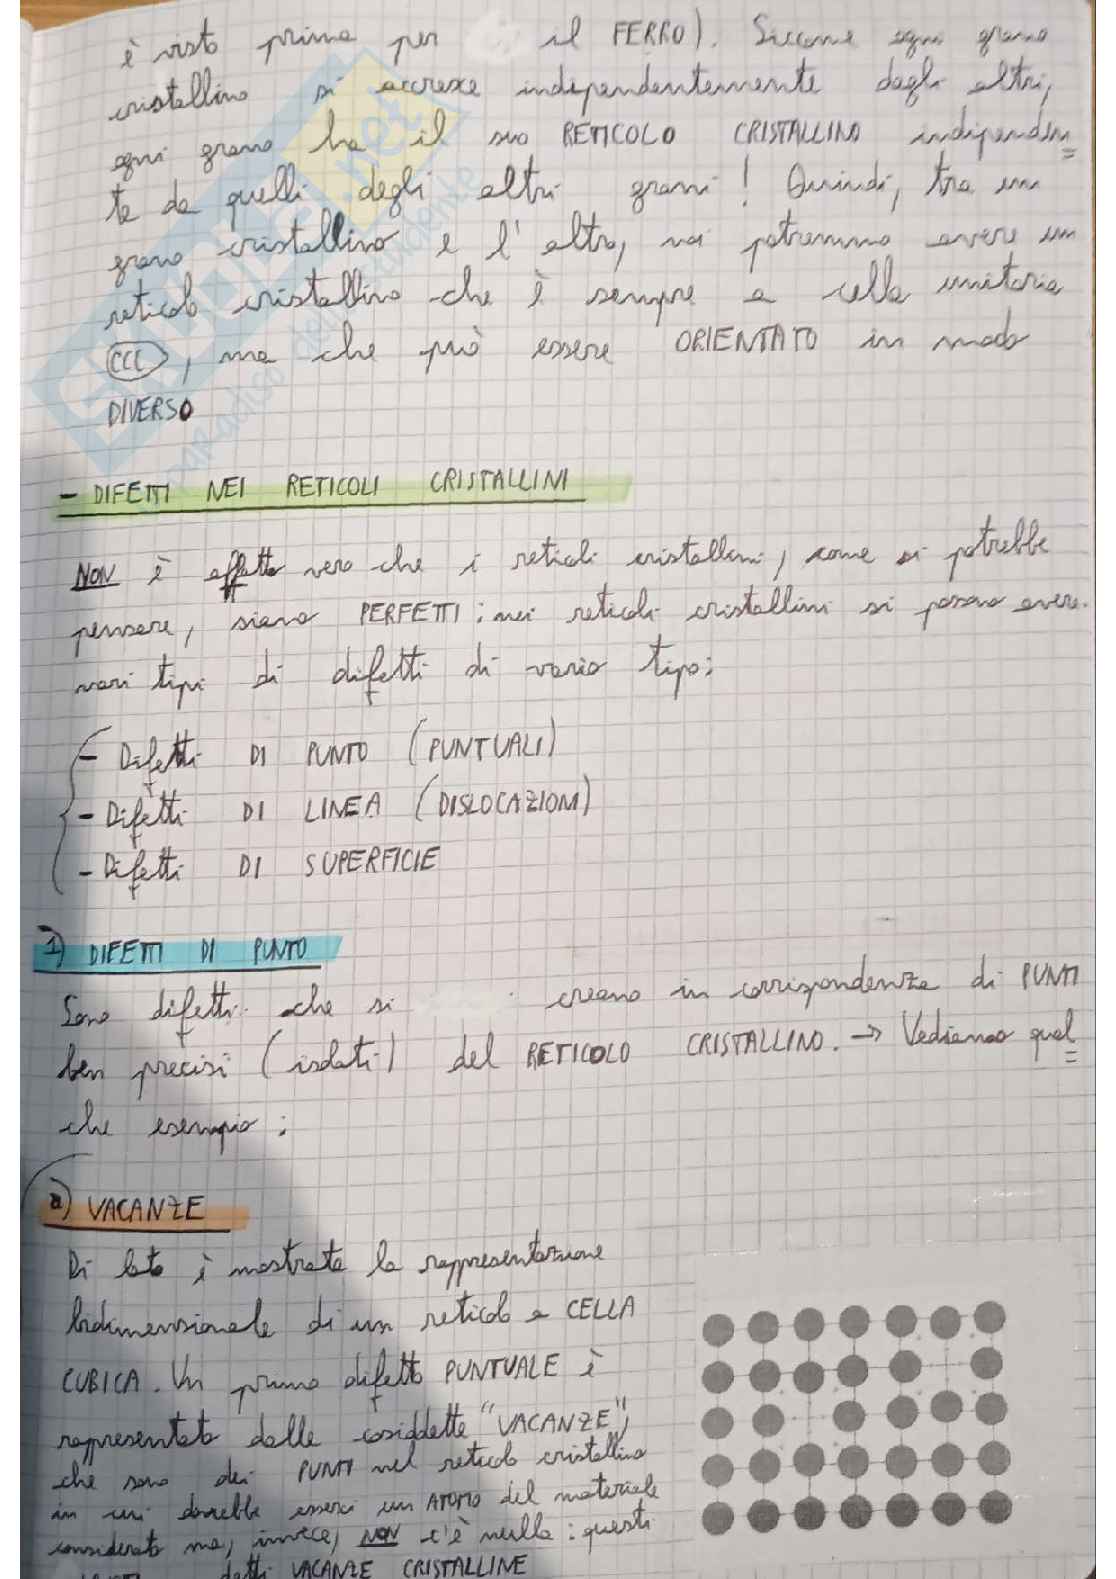 è visto prima per il FERRO). Siccome ogni grano
cristallino si accresce indipendentemente dagli altri,
ogni grano ha il suo RETICOLO CRISTALLINO indipenden
te da quelli degli altri grani! Quindi, tra un
grano cristallino e l'altro, noi potremmo avere un
reticolo cristallino che è sempre a cella unitaria
CCC, ma che può essere ORIENTATO in modo
DIVERSO
- DIFETTI NEI RETICOLI CRISTALLINI
NON è affatto vero che i reticoli cristallini, come si potrebbe
pensare, siano PERFETTI: nei reticoli cristallini si possono avere
vari tipi di difetti di vario tipo:
- Difetti DI PUNTO (PUNTUALI)
- Difetti DI LINEA (DISLOCAZIONI)
- Difetti DI SUPERFICIE
1) DIFETTI DI PUNTO
Sono difetti che si creano in corrispondenza di PUNTI
ben precisi (isolati) del RETICOLO CRISTALLINO. → Vediamo qual
che esempio:
a) VACANZE
Di lato è mostrata la rappresentazione
bidimensionale di un reticolo a CELLA
CUBICA. Un primo difetto PUNTUALE è
rappresentato dalle cosiddette "VACANZE",
che sono dei PUNTI nel reticolo cristallino
in cui dovrebbe esserci un ATOMO del materiale
considerato ma, invece, NON c'è nulla: questi
detti VACANZE CRISTALLINE